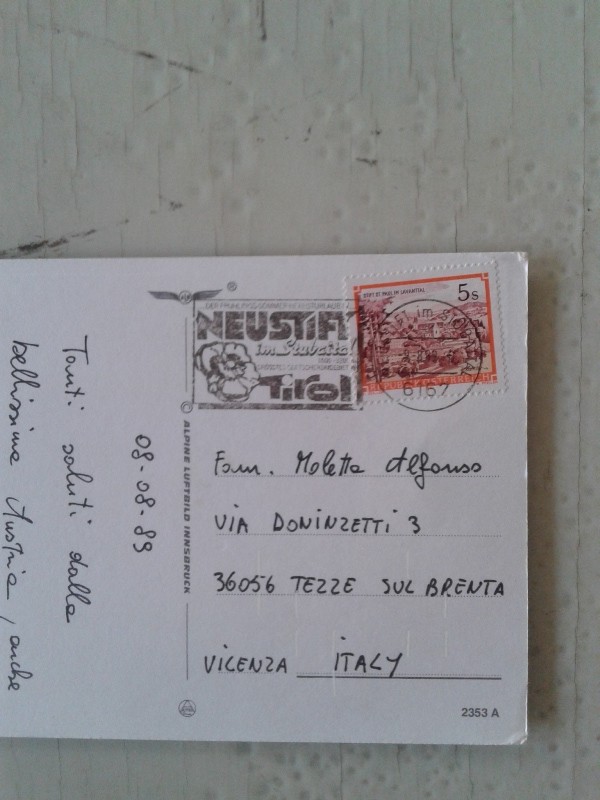 08-08-89
Tanti saluti dalla
bellissima Austria, anche
NEUSTIFT
im Stubaital
Tirol
STIFT ST. PAUL IM LAVANTTAL
5 S
REPUBLIK ÖSTERREICH
6167
© ALPINE LUFTBILD INNSBRUCK
Fam. Moletta Alfonso
VIA DONINZETTI 3
36056 TEZZE SUL BRENTA
VICENZA ITALY
2353 A